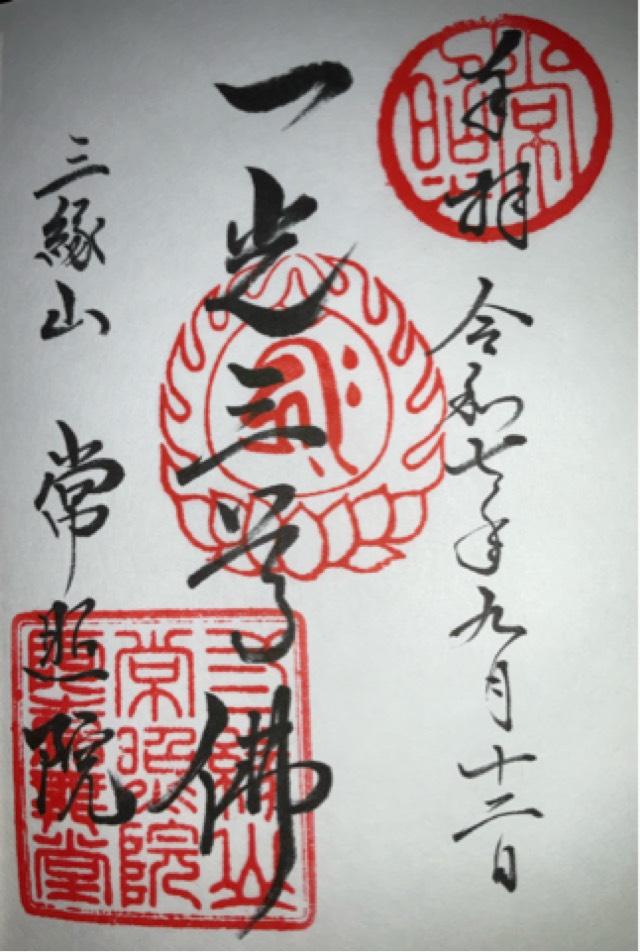 奉拝 令和七年九月十二日
一光三尊佛
三縁山 常照院
常照
三縁山
常照院